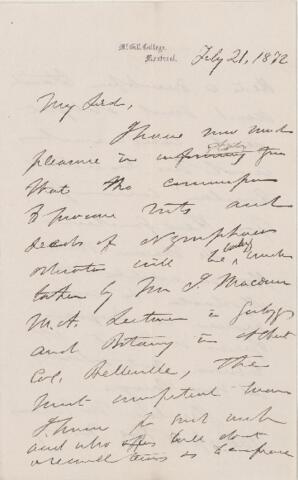 McGill College,
Montreal,
July 21, 1872
My Lord,
I have now much
pleasure in informing you
that the commission
to procure roots and
seeds of Nymphaea
odorata will be
taken by Mr J. Macoun
M.A. Lecturer in Geology
and Botany in Albert
Col. Belleville, the
most competent man
I know for such work
and who will do it